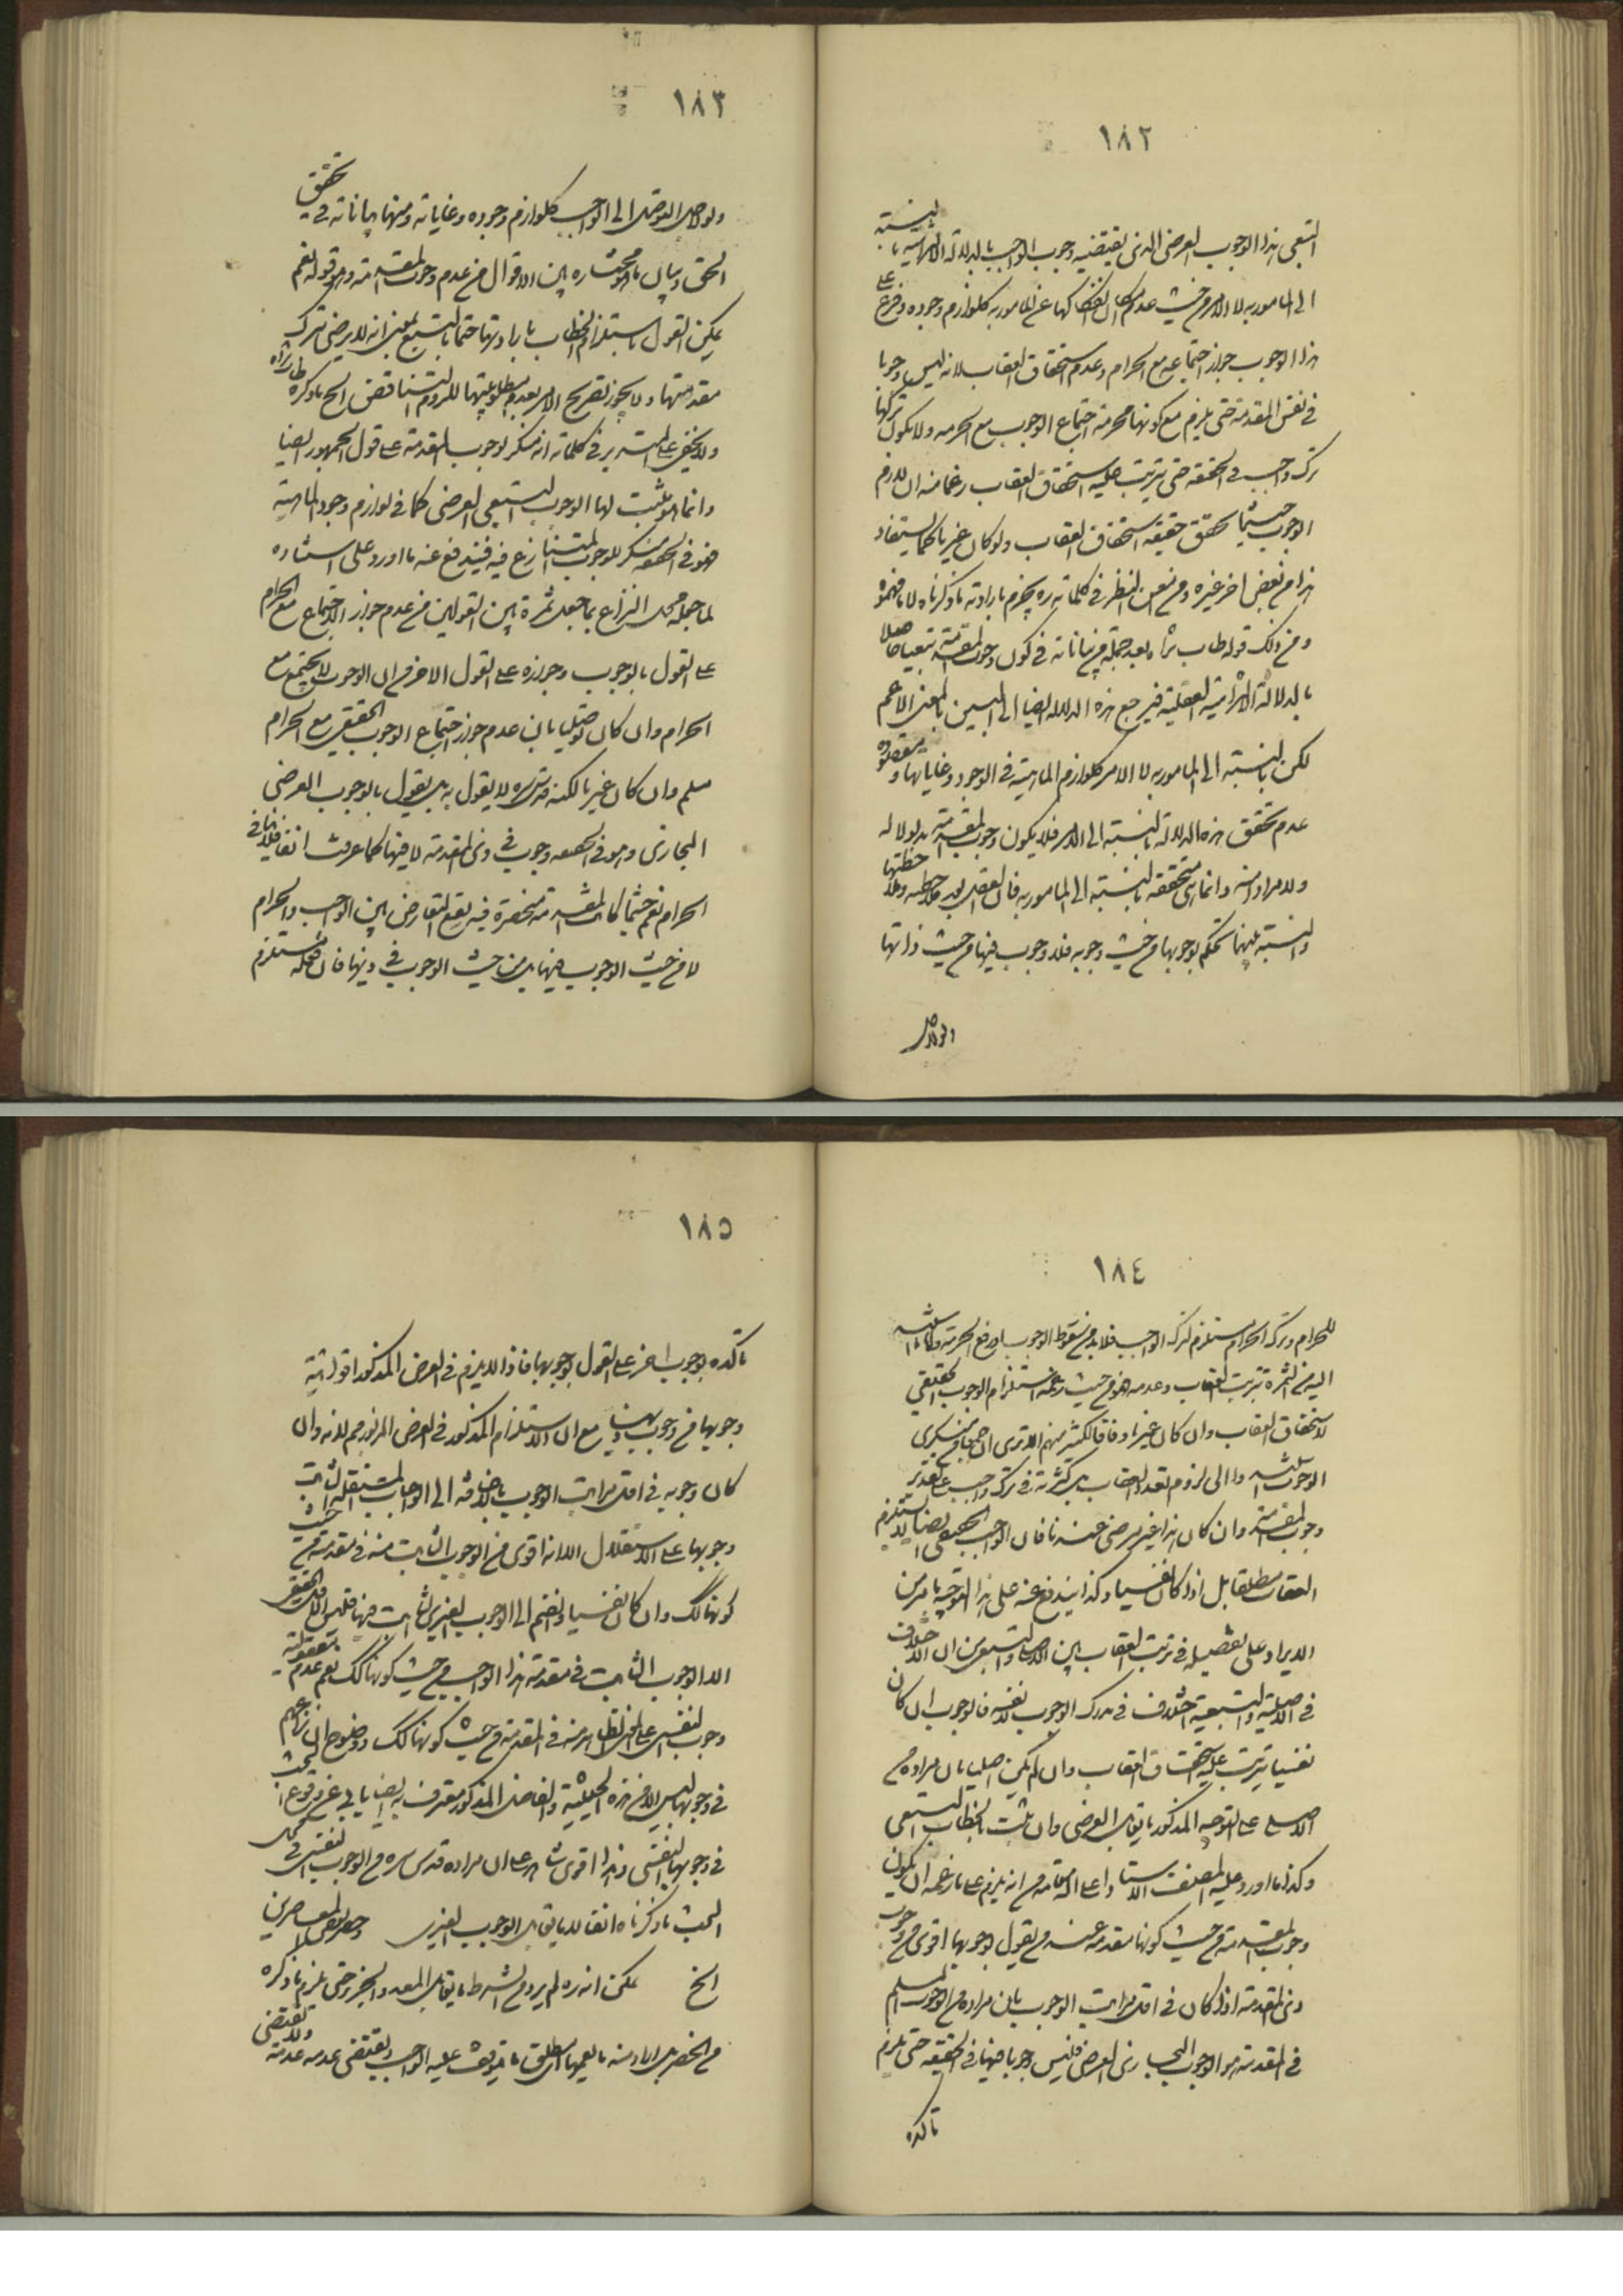 ١٨٢
التبعي هذا الوجوب العرضي الذي يقتضيه وجوب الواجب بالدلالة الالتزامية بالنسبة
الى المأمور به لا الامر من حيث عدم انفكاكها عن المأمور به كلوازم وجوده وفرع على
هذا الوجوب جواز اجتماعه مع الحرام وعدم استحقاق العقاب لانه ليس وجوبا
في نفس المقدمة حتى يلزم مع كونها محرمة اجتماع الوجوب مع الحرمه ولا يكون تركها
ترك واجب في الحقيقه حتى يترتب عليه استحقاق العقاب زعما منه ان لازم
الوجوب حيثما تحقق حقيقه استحقاق العقاب ولو كان غيريا كما يستفاد
هذا من بعض اخر غيره ومن امعن النظر في كلماته ره يجزم بارادته ما ذكرناه لا ما فهموه
ومن ذلك قوله طاب ثراه بعد جملة من بياناته في كون وجوب المقدمة تبعيا حاصلا
بالدلالة الالتزامية العقلية فيرجع هذه الدلالة ايضا الى البين بالمعنى الاعم
لكن بالنسبة الى المأمور به لا الامر كلوازم الماهية في الوجود وغاياتها ومقصوده
عدم تحقق هذه الدلالة بالنسبة الى الامر فلا يكون وجوب المقدمة مدلولا له
ولا مرادا منه وانما هي متحققه بالنسبة الى المأمور به فان العقل بعد ملاحظته وملاحظتها
والنسبة بينهما تحكم بوجوبها من حيث وجوبه فلا وجوب فيها من حيث ذاتها
ولولاصل
١٨٣
ولولاصل التوصل الى الواجب كلوازم وجوده وغاياته ومنها بياناته في تحقيق
الحق وبيان ما هو مختاره بين الاقوال من عدم وجوب المقدمة وهو قوله نعم
يمكن القول باستلزام الخطاب بارادتها حتما بالتبع بمعنى انه لا يرضى بترك
مقدمتها ولا يجوز تصريح الامر بعدم مطلوبيتها للزوم التناقض الخ ما ذكره طاب ثراه
ولا يخفى على المتدبر في كلماته انه منكر لوجوب المقدمة على قول الجمهور ايضا
وانما هو مثبت لها الوجوب التبعي العرضي كما في لوازم وجود الماهية
فهو في الحقيقه منكر للوجوب المتنازع فيه فيندفع عنه ما اورد على استاده
لما جعله محل النزاع بما جعل ثمرة بين القولين من عدم جواز الاجتماع مع الحرام
على القول بالوجوب وجوازه على القول الاخر من ان الوجوب لا يجتمع مع
الحرام وان كان توصليا بان عدم جواز اجتماع الوجوب الحقيقي مع الحرام
مسلم وان كان غيريا لكنه قدس سره لا يقول به بل يقول بالوجوب العرضي
المجازي وهو في الحقيقه وجوب في ذي المقدمة لا فيها كما عرفت انفا فلا ينافي
الحرام نعم حيثما كانت المقدمة منحصرة فيه يقع التعارض بين الواجب والحرام
لا من حيث الوجوب فيها بل من حيث الوجوب في ذيها فان فعله مستلزم
١٨٤
للحرام وترك الحرام مستلزم لترك الواجب فلا بد من سقوط الوجوب او رفع الحرمة وكذا ما نسب
اليه من الثمرة ترتب العقاب وعدمه فهو من حيث زعمه استلزام الوجوب الحقيقي
لاستحقاق العقاب وان كان غيريا وفاقا لكثير منهم الا ترى ان جمعا من منكري
الوجوب استندوا الى لزوم تعدد العقاب بل كثرته في ترك واجب على تقدير
وجوب المقدمة وان كان هذا غير مرضي عندنا فان الواجب الحقيقي ايضا لا يستلزم
العقاب مطلقا بل اذا كان نفسيا وكذا يندفع عنه على هذا التوجيه ما مر من
الايراد على تفصيله في ترتب العقاب بين الاصلي والتبعي من ان الاختلاف
في الاصلية والتبعية اختلاف في مدرك الوجوب لا نفسه فالوجوب ان كان
نفسيا يترتب عليه استحقاق العقاب وان لم يكن اصليا بان مراده من
الاصلي على التوجيه المذكور ما يقابل العرضي وان ثبت بالخطاب التبعي
وكذا ما اورد عليه المصنف الاستاد اعلى الله مقامه من انه يلزم على ما زعمه ان يكون
وجوب المقدمة من حيث كونها مقدمة عند من يقول بوجوبها اقوى من وجوب
ذي المقدمة اذا كان في اقل مراتب الوجوب بان مراده من الوجوب المسلم
في المقدمة هو الوجوب المجازي العرضي فليس وجوبا فيها في الحقيقه حتى يلزم
تأكده
١٨٥
تأكده بوجوب اخر على القول بوجوبها فاذا لا يلزم في الفرض المذكور اقوائية
وجوبها من وجوب ذيها مع ان الاستلزام المذكور في الفرض المزبور مم لانه وان
كان وجوبه في اقل مراتب الوجوب بالاضافه الى الواجبات المستقلة الثابت
وجوبها على الاستقلال الا انه اقوى من الوجوب الثابت منه في مقدمته من حيث
كونها كك وان كان نفسيا وانضم الى الوجوب الغيري الثابت فيها فليس الكل
الا الوجوب الثابت في مقدمة هذا الواجب من حيث كونها كك نعم عدم معقولية
وجوب النفسي على الظاهر منه في المقدمة من حيث كونها كك ووضوح ان نزاعهم
في وجوبها ليس الا من هذه الحيثية والفاضل المذكور معترف به ايضا يابى عن وقوع البحث
في وجوبها النفسي وهذا اقوى شاهد على ان مراده قدس سره من الوجوب النفسي في محل
البحث ما ذكرناه انفا لا ما يقابل الوجوب الغيري وجعل بعض المعاصرين
الخ لكن انه ره لم يرد من الشرط ما يقابل المعد والجزء حتى يلزم ما ذكره
من الحصر بل اراد منه ما يعمها اعني مطلق ما يتوقف عليه الواجب ويقتضي عدمه عدمه ولا يقتضي